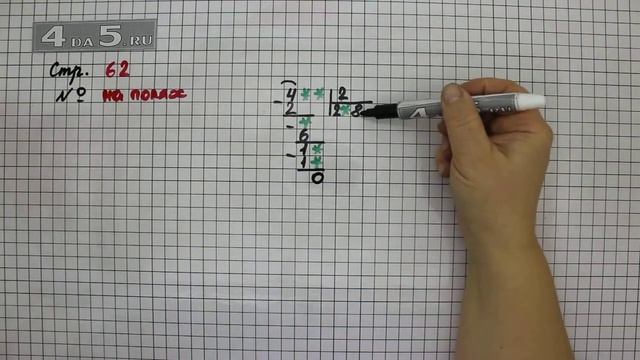 4DA5.RU
Стр. 62
№ на полях
4** 2
- 2 2*8
- *
6
- 1*
1*
0